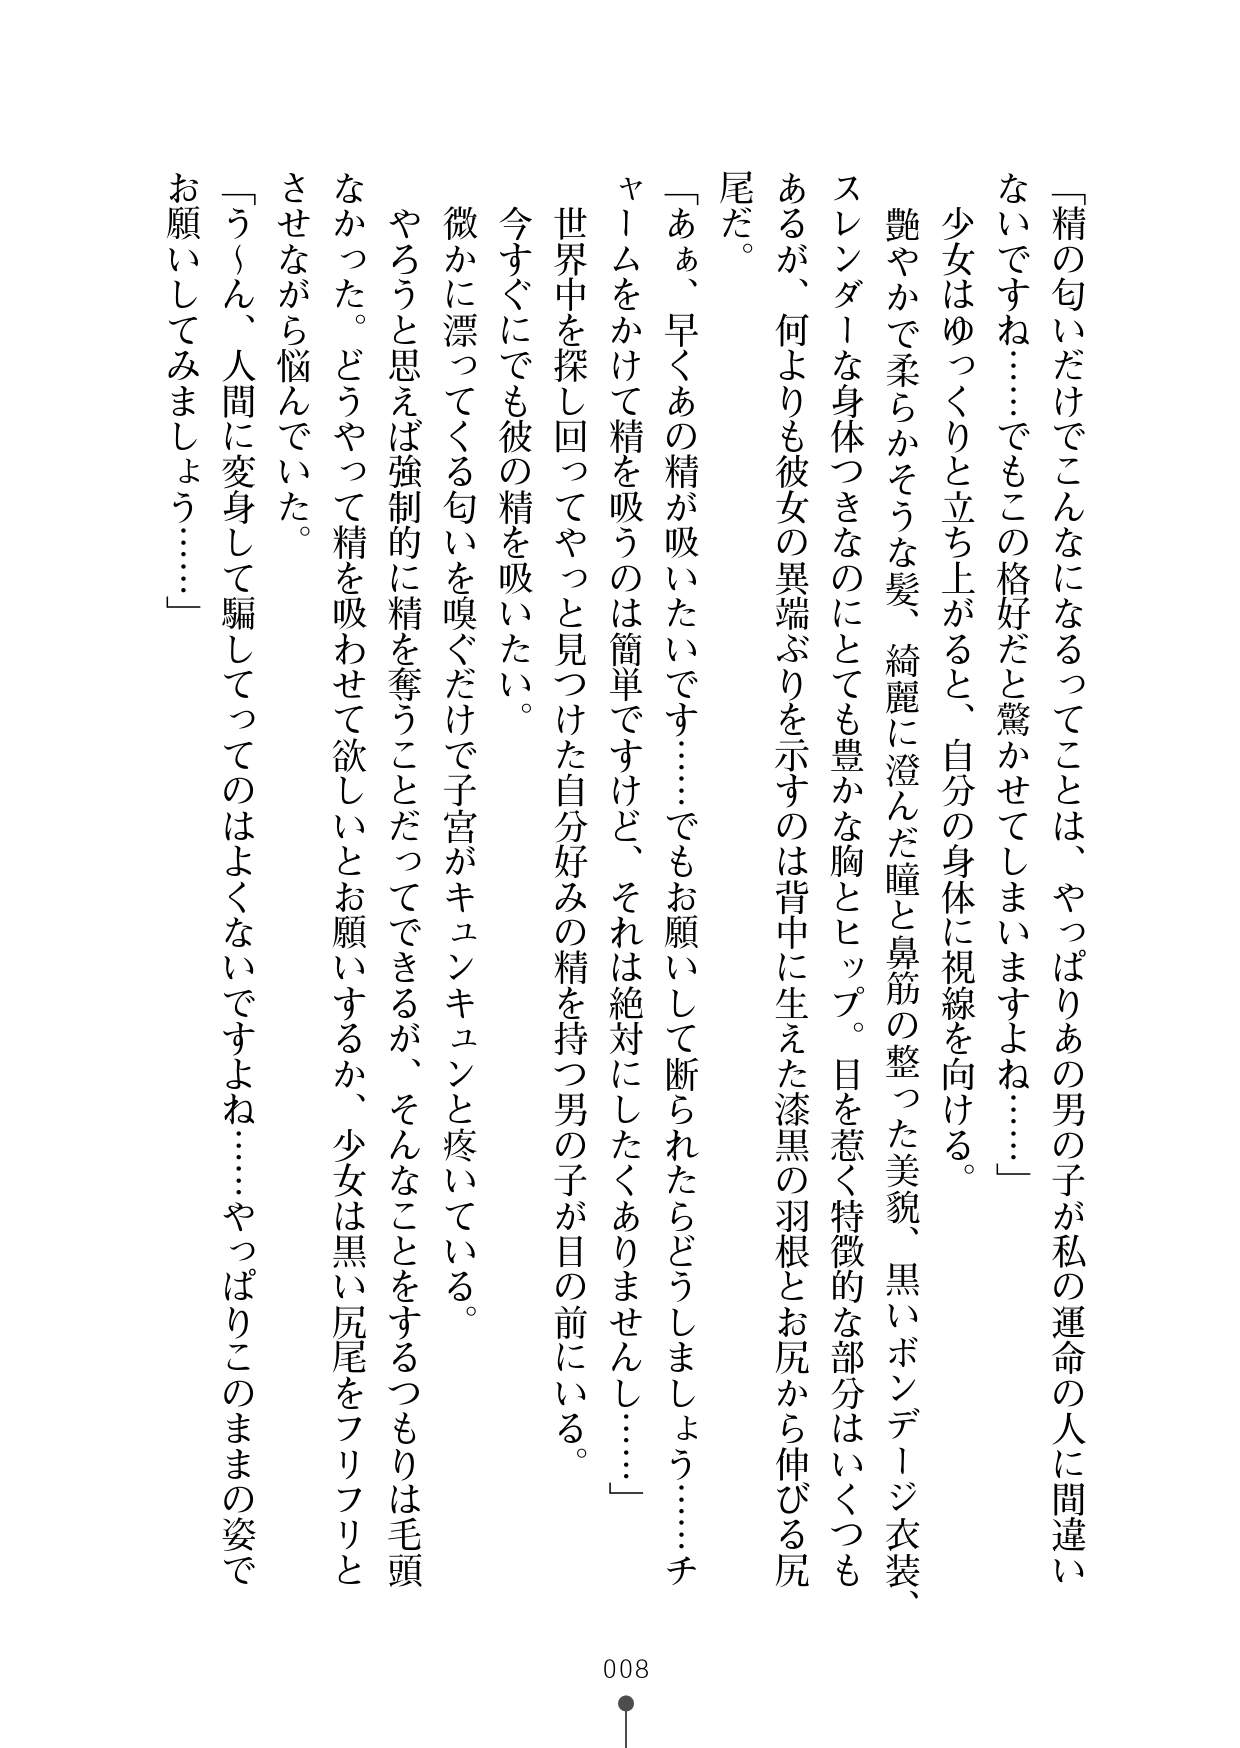 「精の匂いだけでこんなになるってことは、やっぱりあの男の子が私の運命の人に間違い
ないですね……でもこの格好だと驚かせてしまいますよね……」
少女はゆっくりと立ち上がると、自分の身体に視線を向ける。
艶やかで柔らかそうな髪、綺麗に澄んだ瞳と鼻筋の整った美貌、黒いボンデージ衣装、
スレンダーな身体つきなのにとても豊かな胸とヒップ。目を惹く特徴的な部分はいくつも
あるが、何よりも彼女の異端ぶりを示すのは背中に生えた漆黒の羽根とお尻から伸びる尻
尾だ。
「あぁ、早くあの精が吸いたいです……でもお願いして断られたらどうしましょう……チ
ャームをかけて精を吸うのは簡単ですけど、それは絶対にしたくありませんし……」
世界中を探し回ってやっと見つけた自分好みの精を持つ男の子が目の前にいる。
今すぐにでも彼の精を吸いたい。
微かに漂ってくる匂いを嗅ぐだけで子宮がキュンキュンと疼いている。
やろうと思えば強制的に精を奪うことだってできるが、そんなことをするつもりは毛頭
なかった。どうやって精を吸わせて欲しいとお願いするか、少女は黒い尻尾をフリフリと
させながら悩んでいた。
「う〜ん、人間に変身して騙してってのはよくないですよね……やっぱりこのままの姿で
お願いしてみましょう……」
008